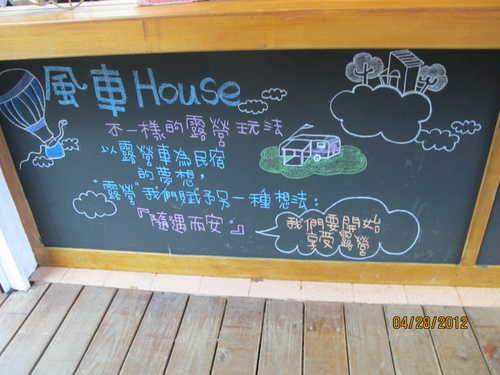 風車House
不一樣的露營玩法
以露營車為民宿
的夢想,
"露營"我們賦予另一種想法:
『隨遇而安.』
我們要開始
享受露營
04/28/2012